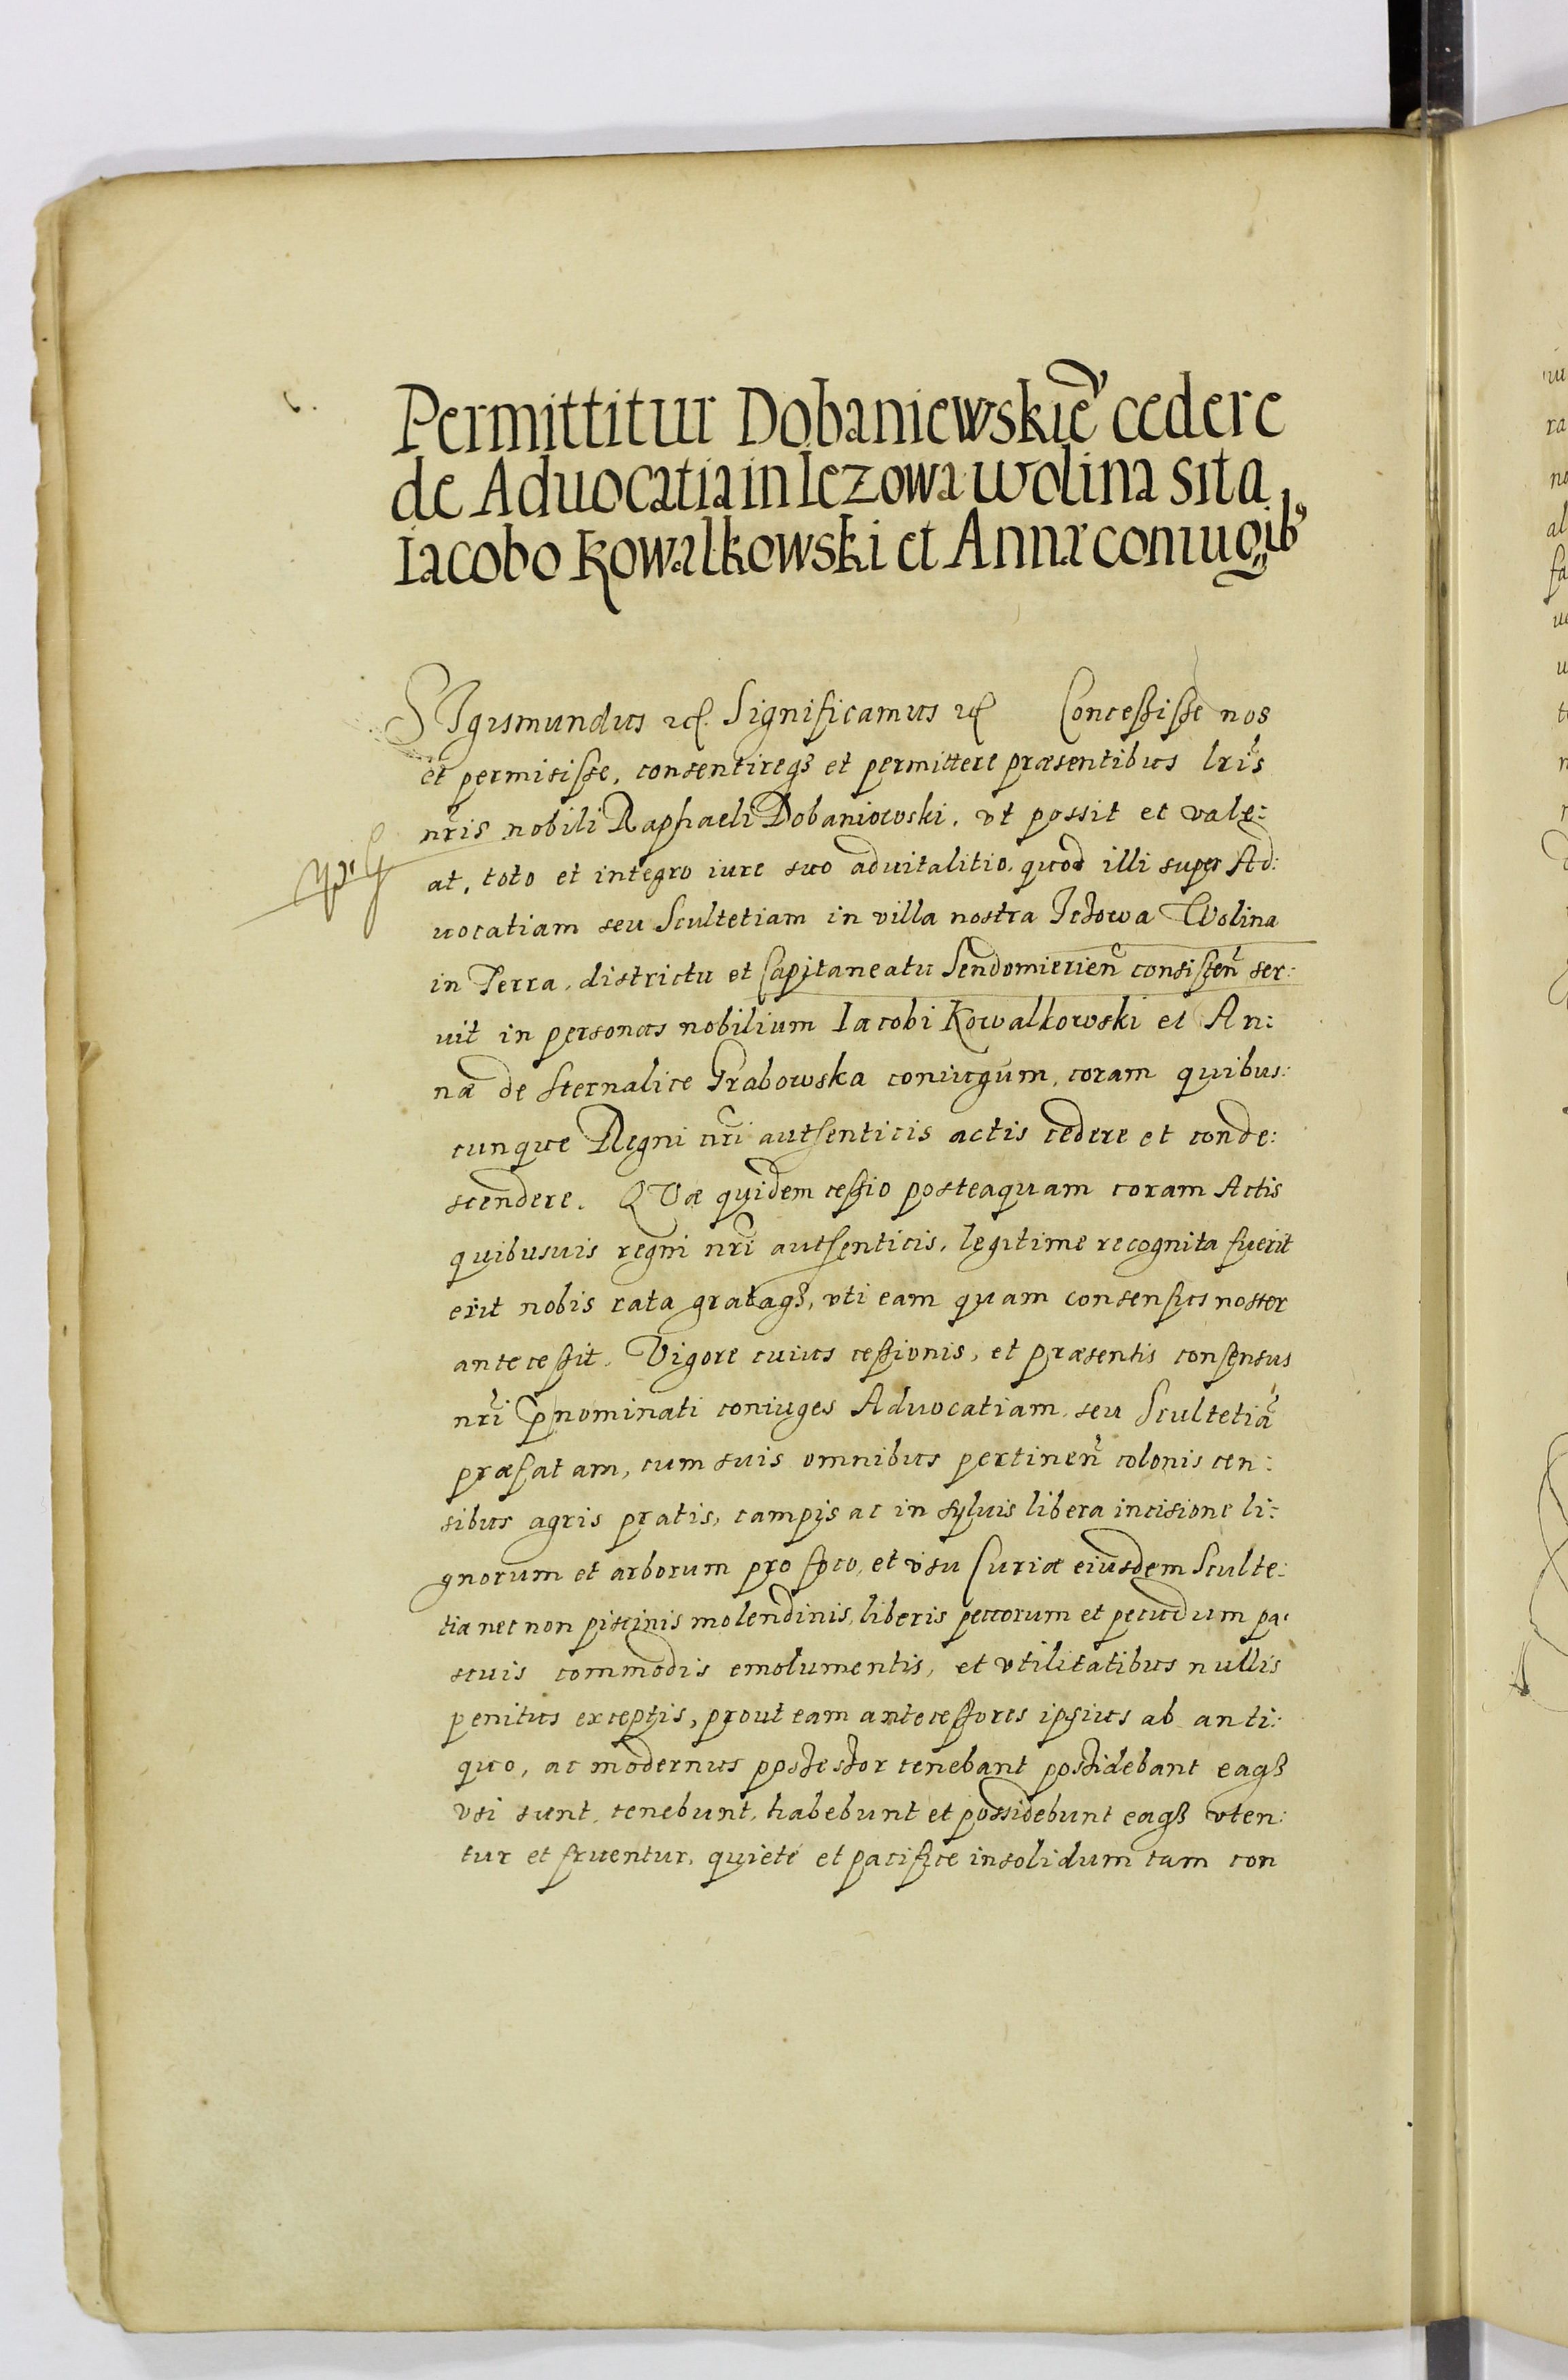 Permittitur Dobaniewskie cedere
de Aduocatia in Iezowa wolina sita
Iacobo Kowalkowski et Annæ coniugib9
SIgismundus etc. Significamus etc Concessisse nos
et permisisse, consentireq3 et permittere præsentibus lr̃is
nr̃is nobili Raphaeli Dobaniowski, vt possit et vale:
at, toto et integro iure suo aduitalitio, quod illi super Ad:
uocatiam seu Scultetiam in villa nostra Iezowa Wolina
in Terra, districtu et Capitaneatu Sendomierien̄ consisten̄ ser:
uit in personas nobilium Iacobi Kowalkowski et An:
næ de Sternalice Grabowska coniugum, coram quibus:
cunque Regni nr̃i authenticis actis cedere et conde:
scendere. QVæ quidem cessio posteaquam coram Actis
quibusuis regni nr̃i authenticis, legitime recognita fuerit
erit nobis rata grataq3, vti eam quam consensus noster
antecessit. Vigore cuius cessionis, et præsentis consensus
nr̃i p̄nominati coniuges Aduocatiam seu Scultetiā
præfatam, cum suis omnibus pertinen̄ colonis cen:
sibus agris pratis, campis ac in syluis libera incisione li:
gnorum et arborum pro foco, et vsu Curiæ eiusdem Sculte:
tia nec non piscinis molendinis, liberis peccorum et pecudum pa:
scuis commodis emolumentis, et vtilitatibus nullis
penitus exceptis, prout eam antecessores ipsius ab anti:
quo, ac modernus possessor tenebant possidebant eaq3
vsi sunt, tenebunt, habebunt et possidebunt eaq3 vten:
tur et fruentur, quietè et pacifice insolidum tam con